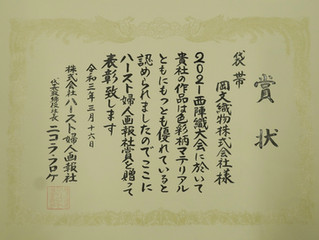 賞状
袋帯
岡文織物株式会社様
2021西陣織大会に於いて
貴社の作品は色彩柄マテリアル
ともにもっとも優れていると
認められましたのでここに
ハースト婦人画報社賞を贈って
表彰致します
令和三年三月十六日
株式会社ハースト婦人画報社
代表取締役社長 ニコラ・フロケ